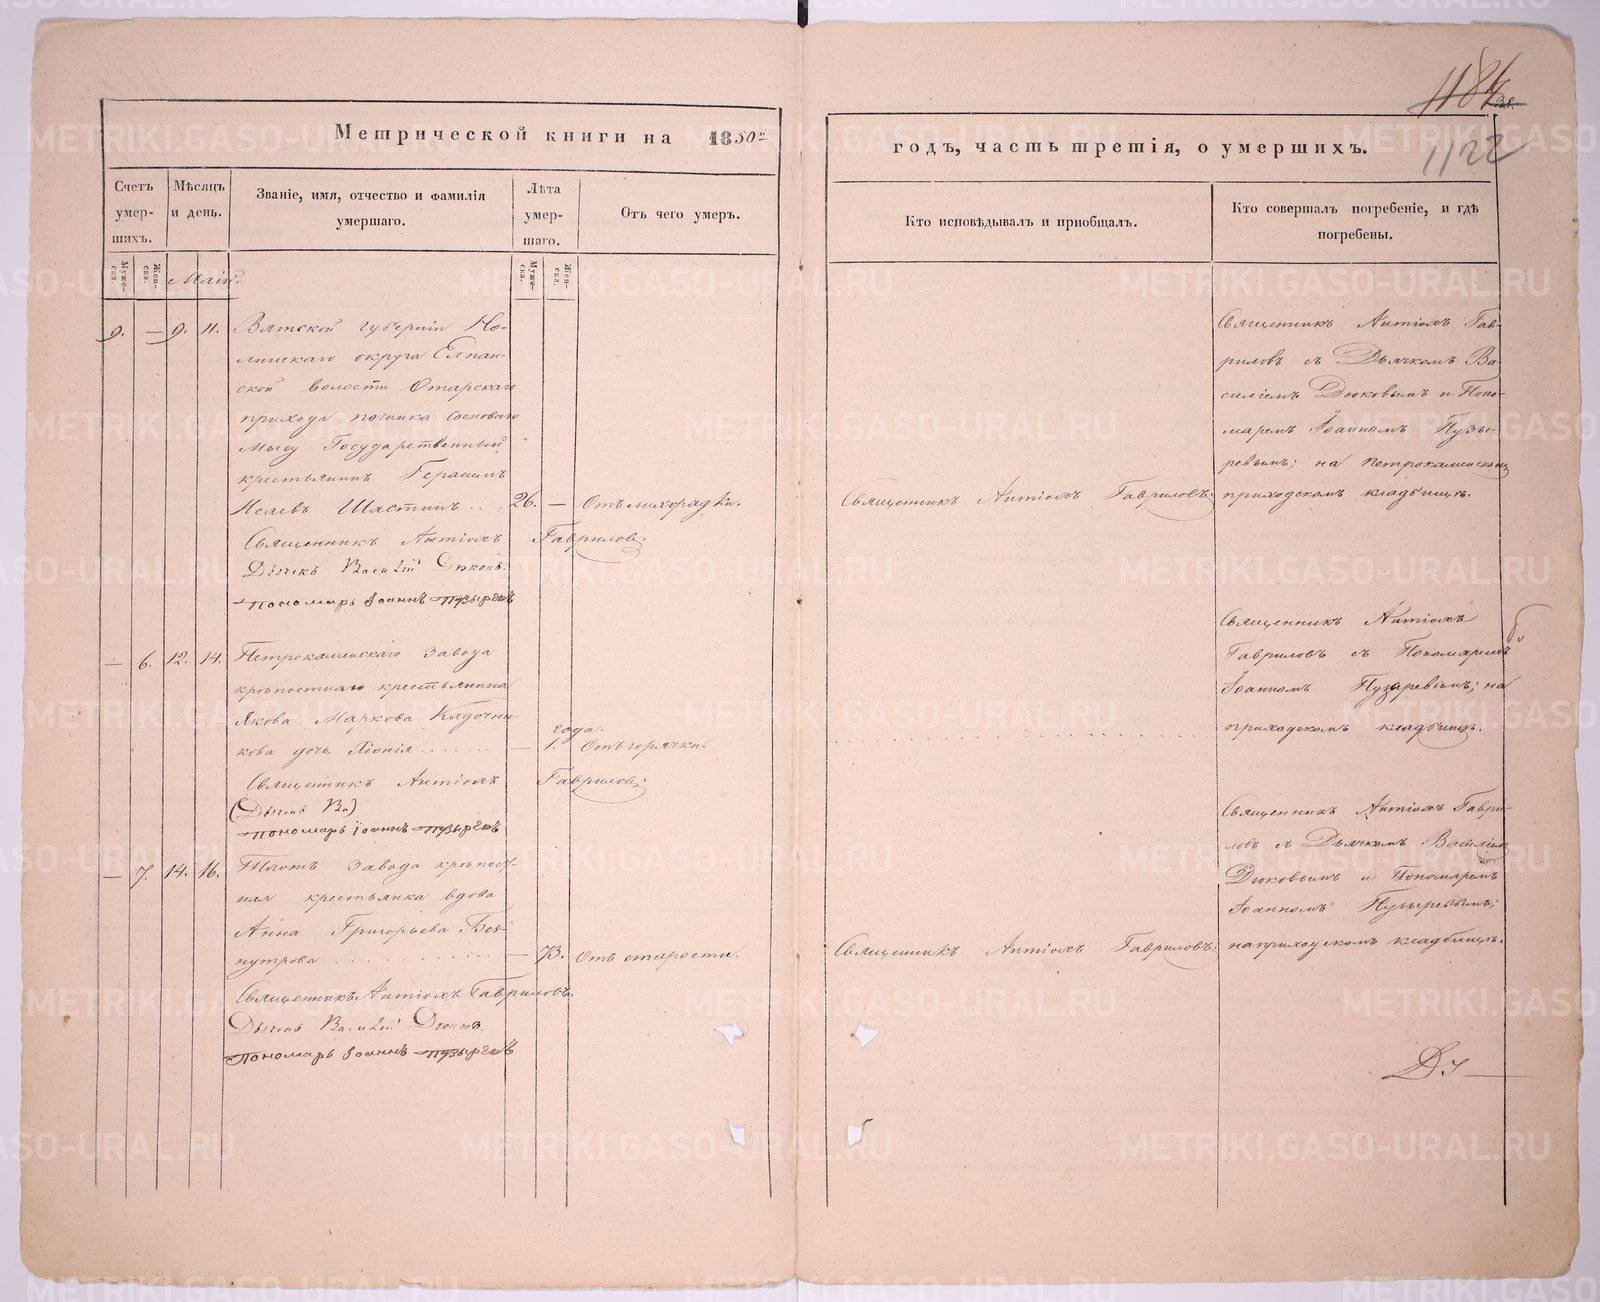 1184
38.
1122
Метрической книги на 1850й
годъ, часть третія, о умершихъ.
Счетъ умер-шихъ.
Мѣсяцъ и день.
Званіе, имя, отчество и фамилія умершаго.
Лѣта умер-шаго.
Отъ чего умеръ.
Кто исповѣдывалъ и пріобщалъ.
Кто совершалъ погребеніе, и гдѣ погребены.
Муже-ска.
Жен-ска.
Маій.
Муже-ска.
Жен-ска.
9. — 9. 11. Вятской губерніи Но-
линскаго округа
ской волости Отарскаго
прихода починка Сосноваго
Мысу Государственный
крестьянинъ Герасимъ
Исаевъ Шастинъ . . . 26. — Отъ лихорадки.
Священникъ Антіохъ Гавриловъ.
Дьячекъ Василій Дюковъ.
Пономарь Іоаннъ Пузыревъ
Священникъ Антіохъ Гавриловъ.
Священникъ Антіохъ Гав-
риловъ съ Дьячкомъ Ва-
силіемъ Дюковымъ и Поно-
маремъ Іоанномъ Пузы-
ревымъ; на Петрокаменскомъ
приходскомъ кладбищѣ.
— 6. 12. 14. Петрокаменскаго завода
крѣпостнаго крестьянина
Якова Маркова Кадочни-
кова дочь Хіонія . . . . . . — 1. года. Отъ горячки.
Священникъ Антіохъ Гавриловъ.
(Дьячекъ Ва)
Пономарь Іоаннъ Пузыревъ
Священникъ Антіохъ
Гавриловъ съ Пономаремъ
Іоанномъ Пузыревымъ; на
приходскомъ кладбищѣ.
— 7. 14. 16. Тогожъ завода крѣпост-
ная крестьянка вдова
Анна Григорьева
нутрова . . . . . . . . . . — 73. Отъ старости.
Священникъ Антіохъ Гавриловъ.
Дьячекъ Василій Дюковъ.
Пономарь Іоаннъ Пузыревъ
Священникъ Антіохъ Гавриловъ.
Священникъ Антіохъ Гаври-
ловъ съ Дьячкомъ Василіемъ
Дюковымъ и Пономаремъ
Іоанномъ Пузыревымъ;
на приходскомъ кладбищѣ.
METRIKI.GASO-URAL.RU